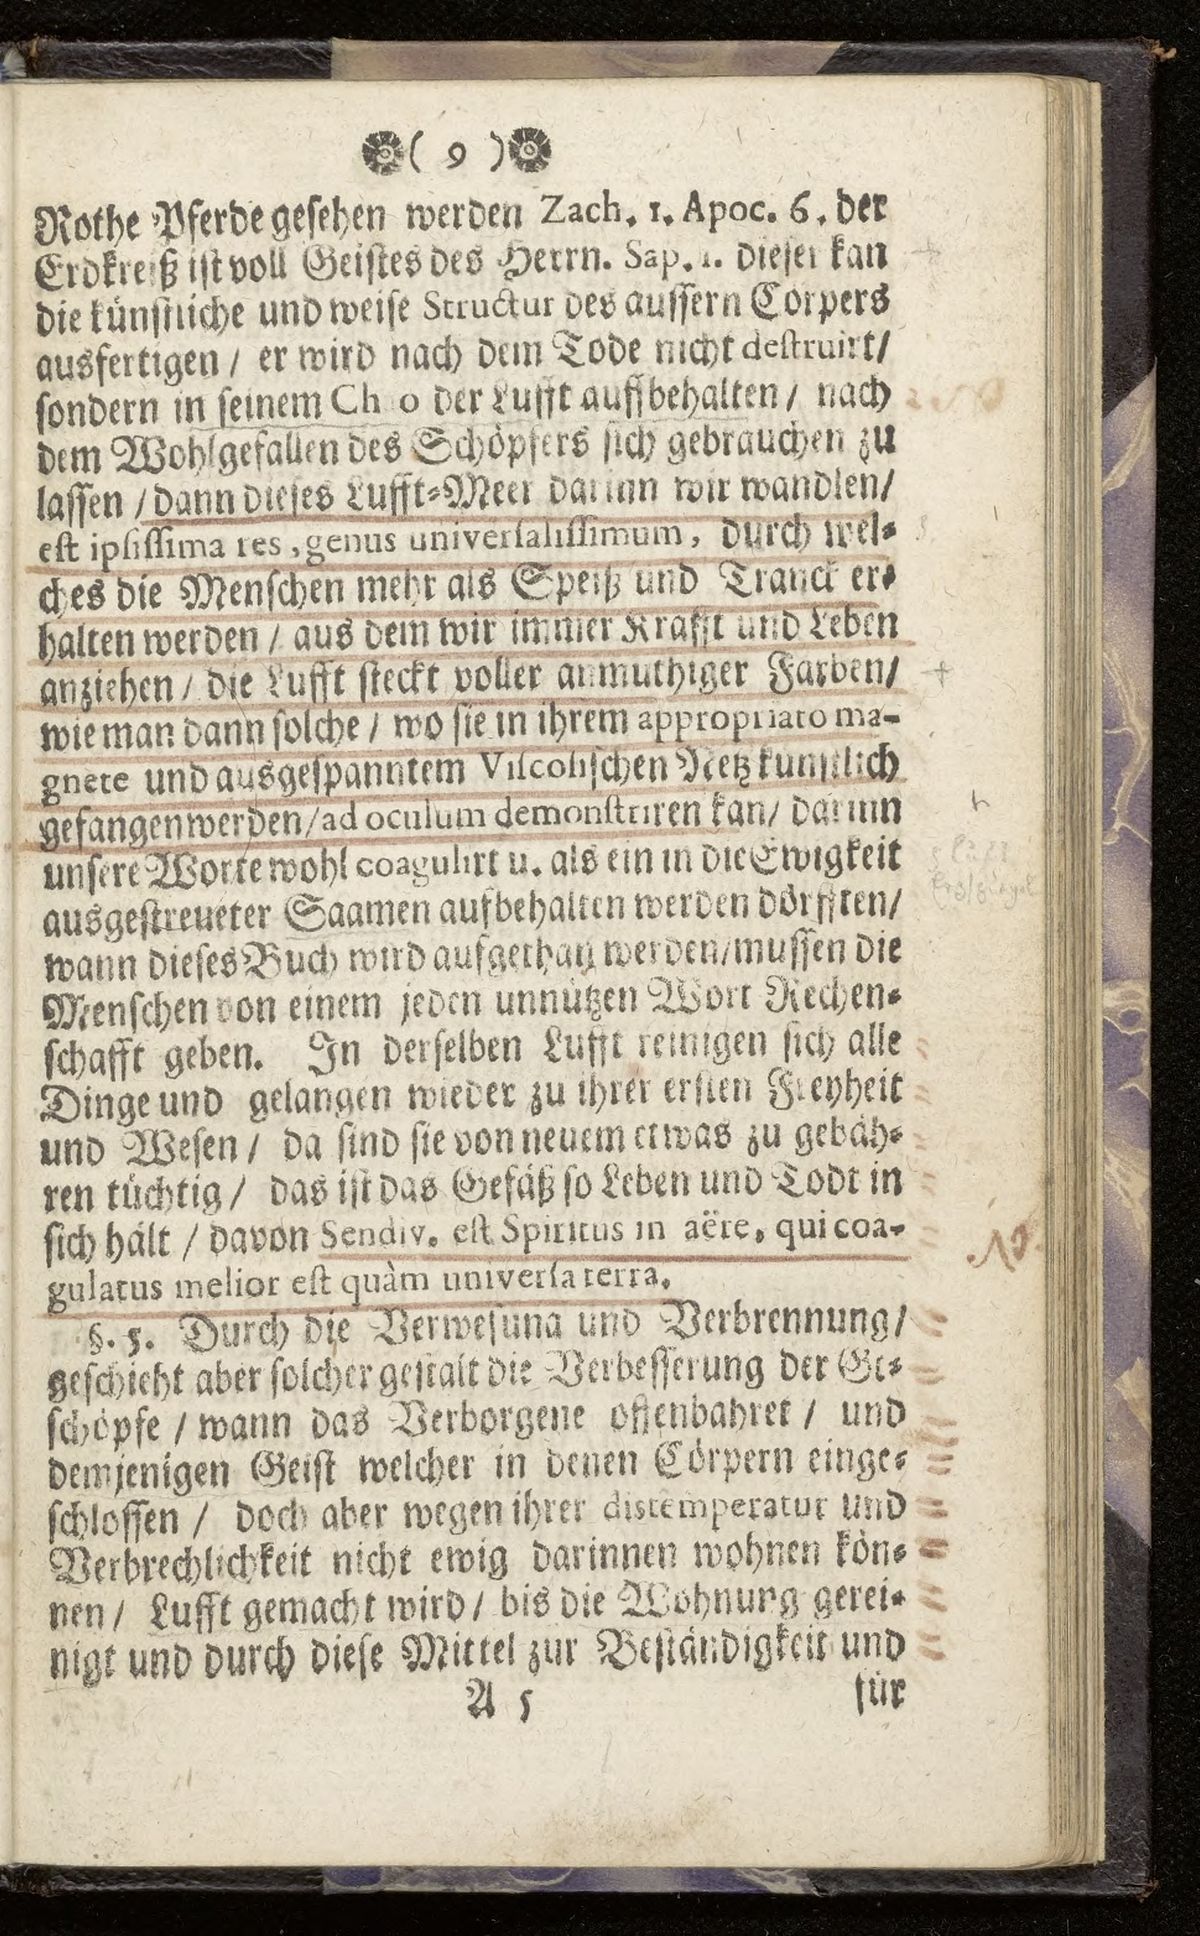 ( 9 )
Rothe Pferde gesehen werden Zach. 1. Apoc. 6. der
Erdkreiß ist voll Geistes des Herrn. Sap. 1. dieser kan
die künstliche und weise Structur des aussern Corpers
ausfertigen / er wird nach dem Tode nicht destruirt/
sondern in seinem Ch o der Lufft auffbehalten / nach
dem Wohlgefallen des Schöpfers sich gebrauchen zu
lassen / dann dieses Lufft-Meer darinn wir wandlen/
est ipsissima res, genus universalissimum, durch wel-
ches die Menschen mehr als Speiß und Tranck er-
halten werden / aus dem wir immer Krafft und Leben
anziehen / die Lufft steckt voller anmuthiger Farben/
wie man dann solche / wo sie in ihrem appropriato ma-
gnete und ausgespanntem Viscosischen Netz kunstlich
gefangen werden/ad oculum demonstriren kan/ darinn
unsere Worte wohl coagulirt u. als ein in die Ewigkeit
ausgestreueter Saamen aufbehalten werden dörfften/
wann dieses Buch wird aufgethan werden/mussen die
Menschen von einem jeden unnützen Wort Rechen-
schafft geben. In derselben Lufft reinigen sich alle
Dinge und gelangen wieder zu ihrer ersten Freyheit
und Wesen / da sind sie von neuem etwas zu gebäh-
ren tüchtig / das ist das Gefäß so Leben und Todt in
sich hält / davon Sendiv. est Spiritus in aëre, qui coa-
gulatus melior est quàm universa terra.
§. 5. Durch die Verwesung und Verbrennung/
geschieht aber solcher gestalt die Verbesserung der Ge-
schöpfe / wann das Verborgene offenbahret / und
demjenigen Geist welcher in denen Cörpern einge-
schlossen / doch aber wegen ihrer distemperatur und
Verbrechlichkeit nicht ewig darinnen wohnen kön-
nen / Lufft gemacht wird / bis die Wohnung gerei-
nigt und durch diese Mittel zur Beständigkeit und
A 5 für